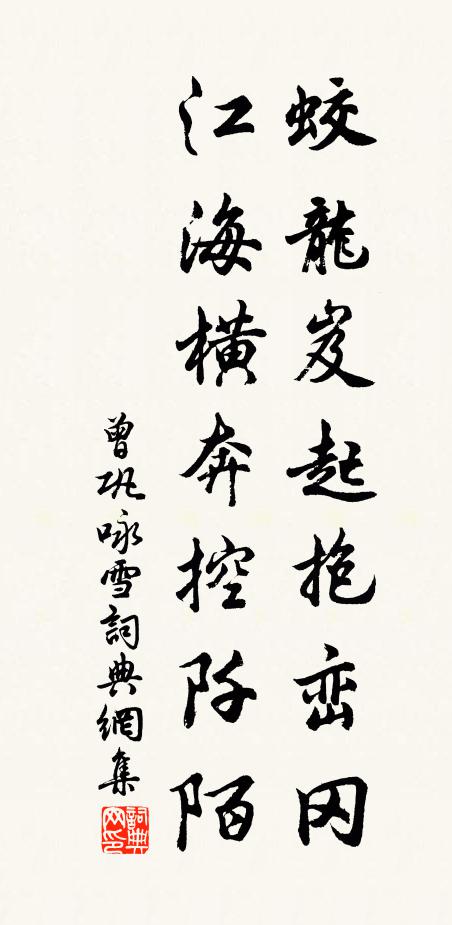 蛟龍岌起抱峦冈
江海橫奔控阡陌
曾巩咏雪詞典網集
詞典網印